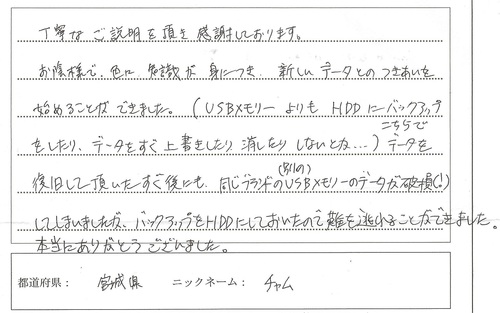 丁寧なご説明を頂き感謝しております。
お陰様で、色んな知識が身につき、新しいデータとのつきあいを
始めることができました。(USBメモリーよりもHDDにバックアップ
をしたり、データをすぐ上書きしたり消したりしないとか…)こちらでデータを
復旧して頂いたすぐ後にも、同じブランドの(別の)USBメモリーのデータが破損(!)
してしまいましたが、バックアップをHDDにしておいたので難を逃れることができました。
本当にありがとうございました。
都道府県: 宮城県 ニックネーム: チャム